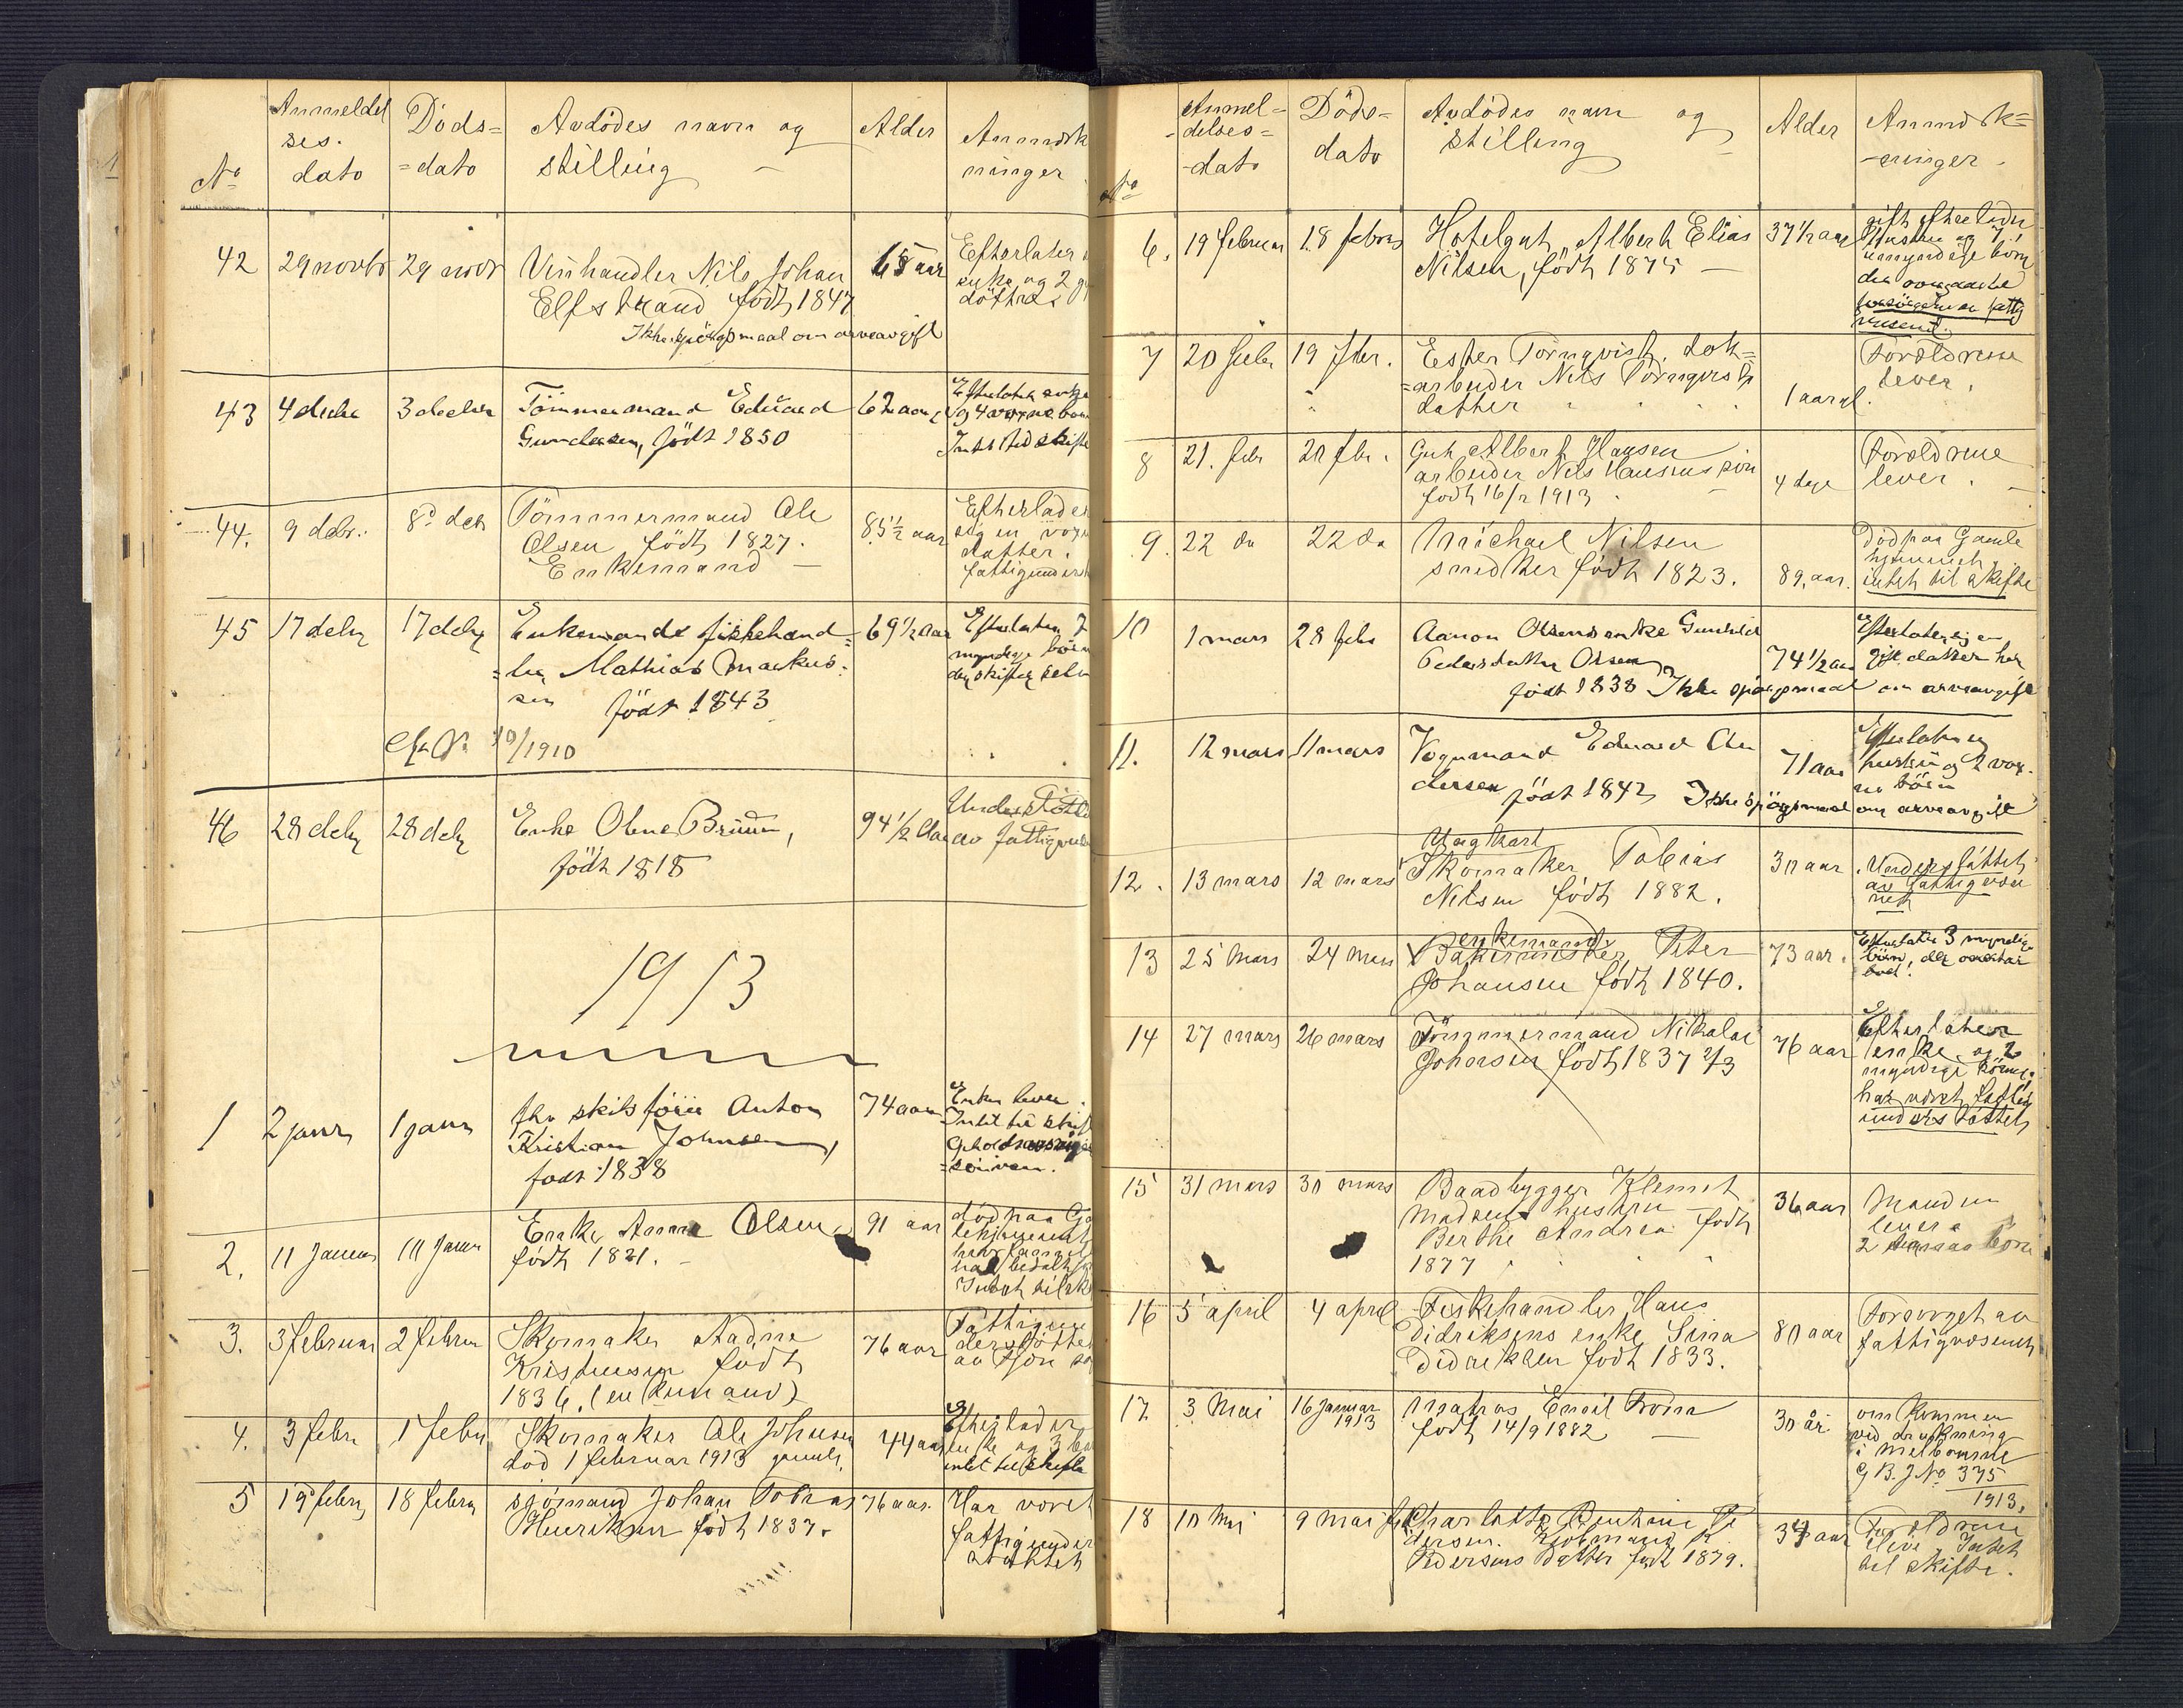 No
Anmeldel
ses.
dato
Döds=
=dato
Avdödes navn og
stilling
Alder
Anmærk
ninger
42
29 novbr
29 novbr
Vinhandler Nils Johan
Elfstrand född 1847
Ikke spörgsmaal om arveavgift
65 aar
Efterlater
enke og 2
döttre
43
4 decbr
3 decbr
Tömmermand Eduard
Gundersen, född 1850
62 aar
Efterlater enke
og 4 voxne børn
Intet til skifte
44.
9 debr.
8 deb
Tömmermand Ole
Olsen född 1827.
Enkemand
85½ aar
Efterlader
sig en voxen
datter.
fattigunderst
45
17 debr
17 debr
Enkemand fiskehand=
=ler Mathias Markus=
sen född 1843
Cfr No 10/1910
69½ aar
Efterlater 7
myndige børn
der skifter selv
46
28 debr
28 debr
Enke Oline Bruun,
född 1818
94½ aar
Understöttet
av fattigvæsen
1913
1
2 januar
1 januar
fhv skibsförer Anton
Kristian Johnsen,
född 1838
74 aar
Enken lever.
Intet til skifte
2.
11 Januar
10 Januar
Enke Anna Olsen
född 1821.
91 aar
død paa Ga
lehjemmet
har betalt
Intet til sk
3.
3 februar
2 februar
Skomaker Aadne
Kristensen född
1836. (enkemand)
76 aar
Fattigun
derstöttet
av
4.
3 febr
1 febr
Skomaker Ole Johnsen
död 1 februar 1913
44 aar
Efterlader
enke og 3
intet til skifte
5
19 febr
18 febr
sjömand Johan Tobias
Henriksen född 1837.
76 aar.
Har været
fattigunder
stöttet
No
Anmel=
=delses=
=dato
Döds=
dato
Avdödes navn og
stilling
Alder
Anmærk=
=ninger.
6.
19 februar
18 febr
Hotelgut, Albert Elias
Nilsen, född 1875
37½ aar
gift efterlader
Hustru og 7
umyndige børn
7
20 febr
19 fbr.
Ester Törnqvist. Dok=
=arbeider Nils Törnqvists
datter
1 aar gl.
Forældrene
lever.
8
21. febr
20 fbr.
Gut Albert Hansen
arbeider Nils Hansens sön
född 16/2 1913
4 dage
Forældrene
lever.
9.
22 do
22 do
Michael Nilsen
smed her född 1823.
89. aar.
Död paa Gamle
hjemmet
intet til skifte
10
1 mars
28 febr
Aanon Olsens enke Gunhild
Pedersdatter Olsen
född 1838 Ikke spörgsmaal om arveavgift
74½ aar
Efterlater sig en
gift datter her
11.
12 mars
11 mars
Vognmand Eduard An
dersen född 1842 Ikke spörgsmaal om arveavgift
71 aar
Efterlater
hustru og 2 vox-
ne børn
12.
13 mars
12 mars
Ungkarl
Skomaker Tobias
Nilsen född 1882.
30 aar
Understöttet
av fattigvæse
net
13
25 Mars
24 Mars
enkemand
Bakermester Peter
Johansen född 1840.
73 aar.
Efterlater 3 myndige
børn, der overtar
boet.
14
27 mars
26 mars
Tömmermand Nikolai
Johnsen född 1837 2/3
76 aar
Efterlater
enke og 2
myndige börn.
har været fattig
understöttet
15
31 mars
30 mars
Baadbygger Klemet
Madsens hustru
Berthe Andrea född
1877
36 aar
Manden
lever
2 smaa børn
16
5 april
4 april
Fiskehandler Hans
Didriksens enke Sina
Didriksen född 1833.
80 aar
Forsørget av
fattigvæsenet
17.
3 Mai
16 Januar
1913
Matros Emil
född 14/9 1882
30 år
omkommen
ved drukning
i Melbourne
G B. J No 375
1913.
18
10 Mai
9 mai
Charlotte
dersen.
Pedersens datter född 1879.
34 aar
Forældrene
i live. Intet
til skifte.